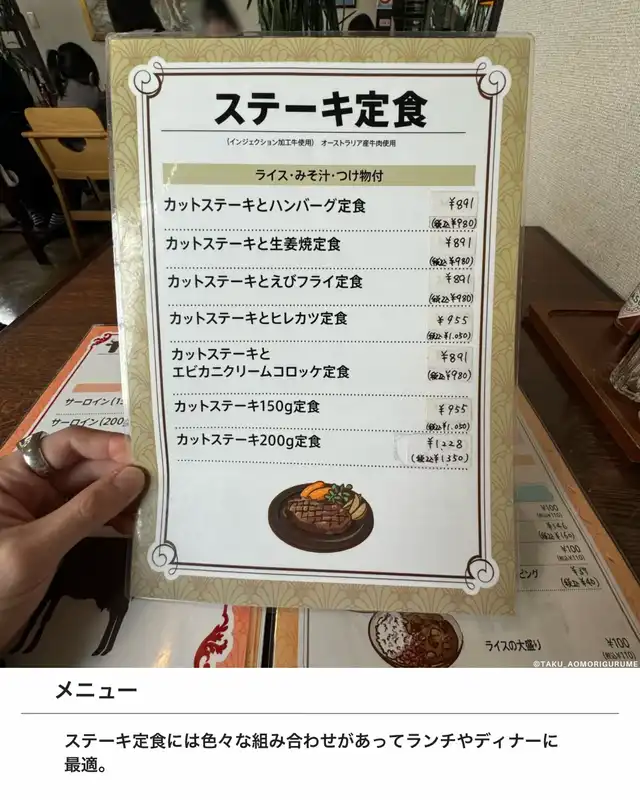 ステーキ定食
(インジェクション加工牛使用) オーストラリア産牛肉使用
ライス・みそ汁・つけ物付
カットステーキとハンバーグ定食 ¥891
(税込¥980)
カットステーキと生姜焼定食 ¥891
(税込¥980)
カットステーキとえびフライ定食 ¥891
(税込¥980)
カットステーキとヒレカツ定食 ¥955
(税込¥1.050)
カットステーキと
エビカニクリームコロッケ定食 ¥891
(税込¥980)
カットステーキ150g定食 ¥955
(税込¥1.050)
カットステーキ200g定食 ¥1228
(税込¥1350)
サーロイン(15
サーロイン(200g
¥100
(税込¥110)
¥146
(税込¥160)
¥100
(税込¥110)
ピング ¥37
(税込¥40)
ライスの大盛り ¥100
(税込¥110)
©TAKU_AOMORIGURUME
メニュー
ステーキ定食には色々な組み合わせがあってランチやディナーに
最適。